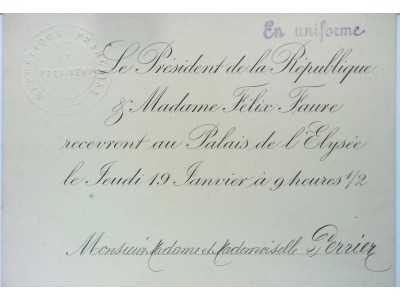 RÉPUBLIQUE FRANÇAISE
PRÉSIDENT
En uniforme
Le Président de la République
& Madame Félix Faure
recevront au Palais de l'Elysée
le Jeudi 19 Janvier à 9 heures 1/2
Monsieur Madame et Mademoiselle Perrier